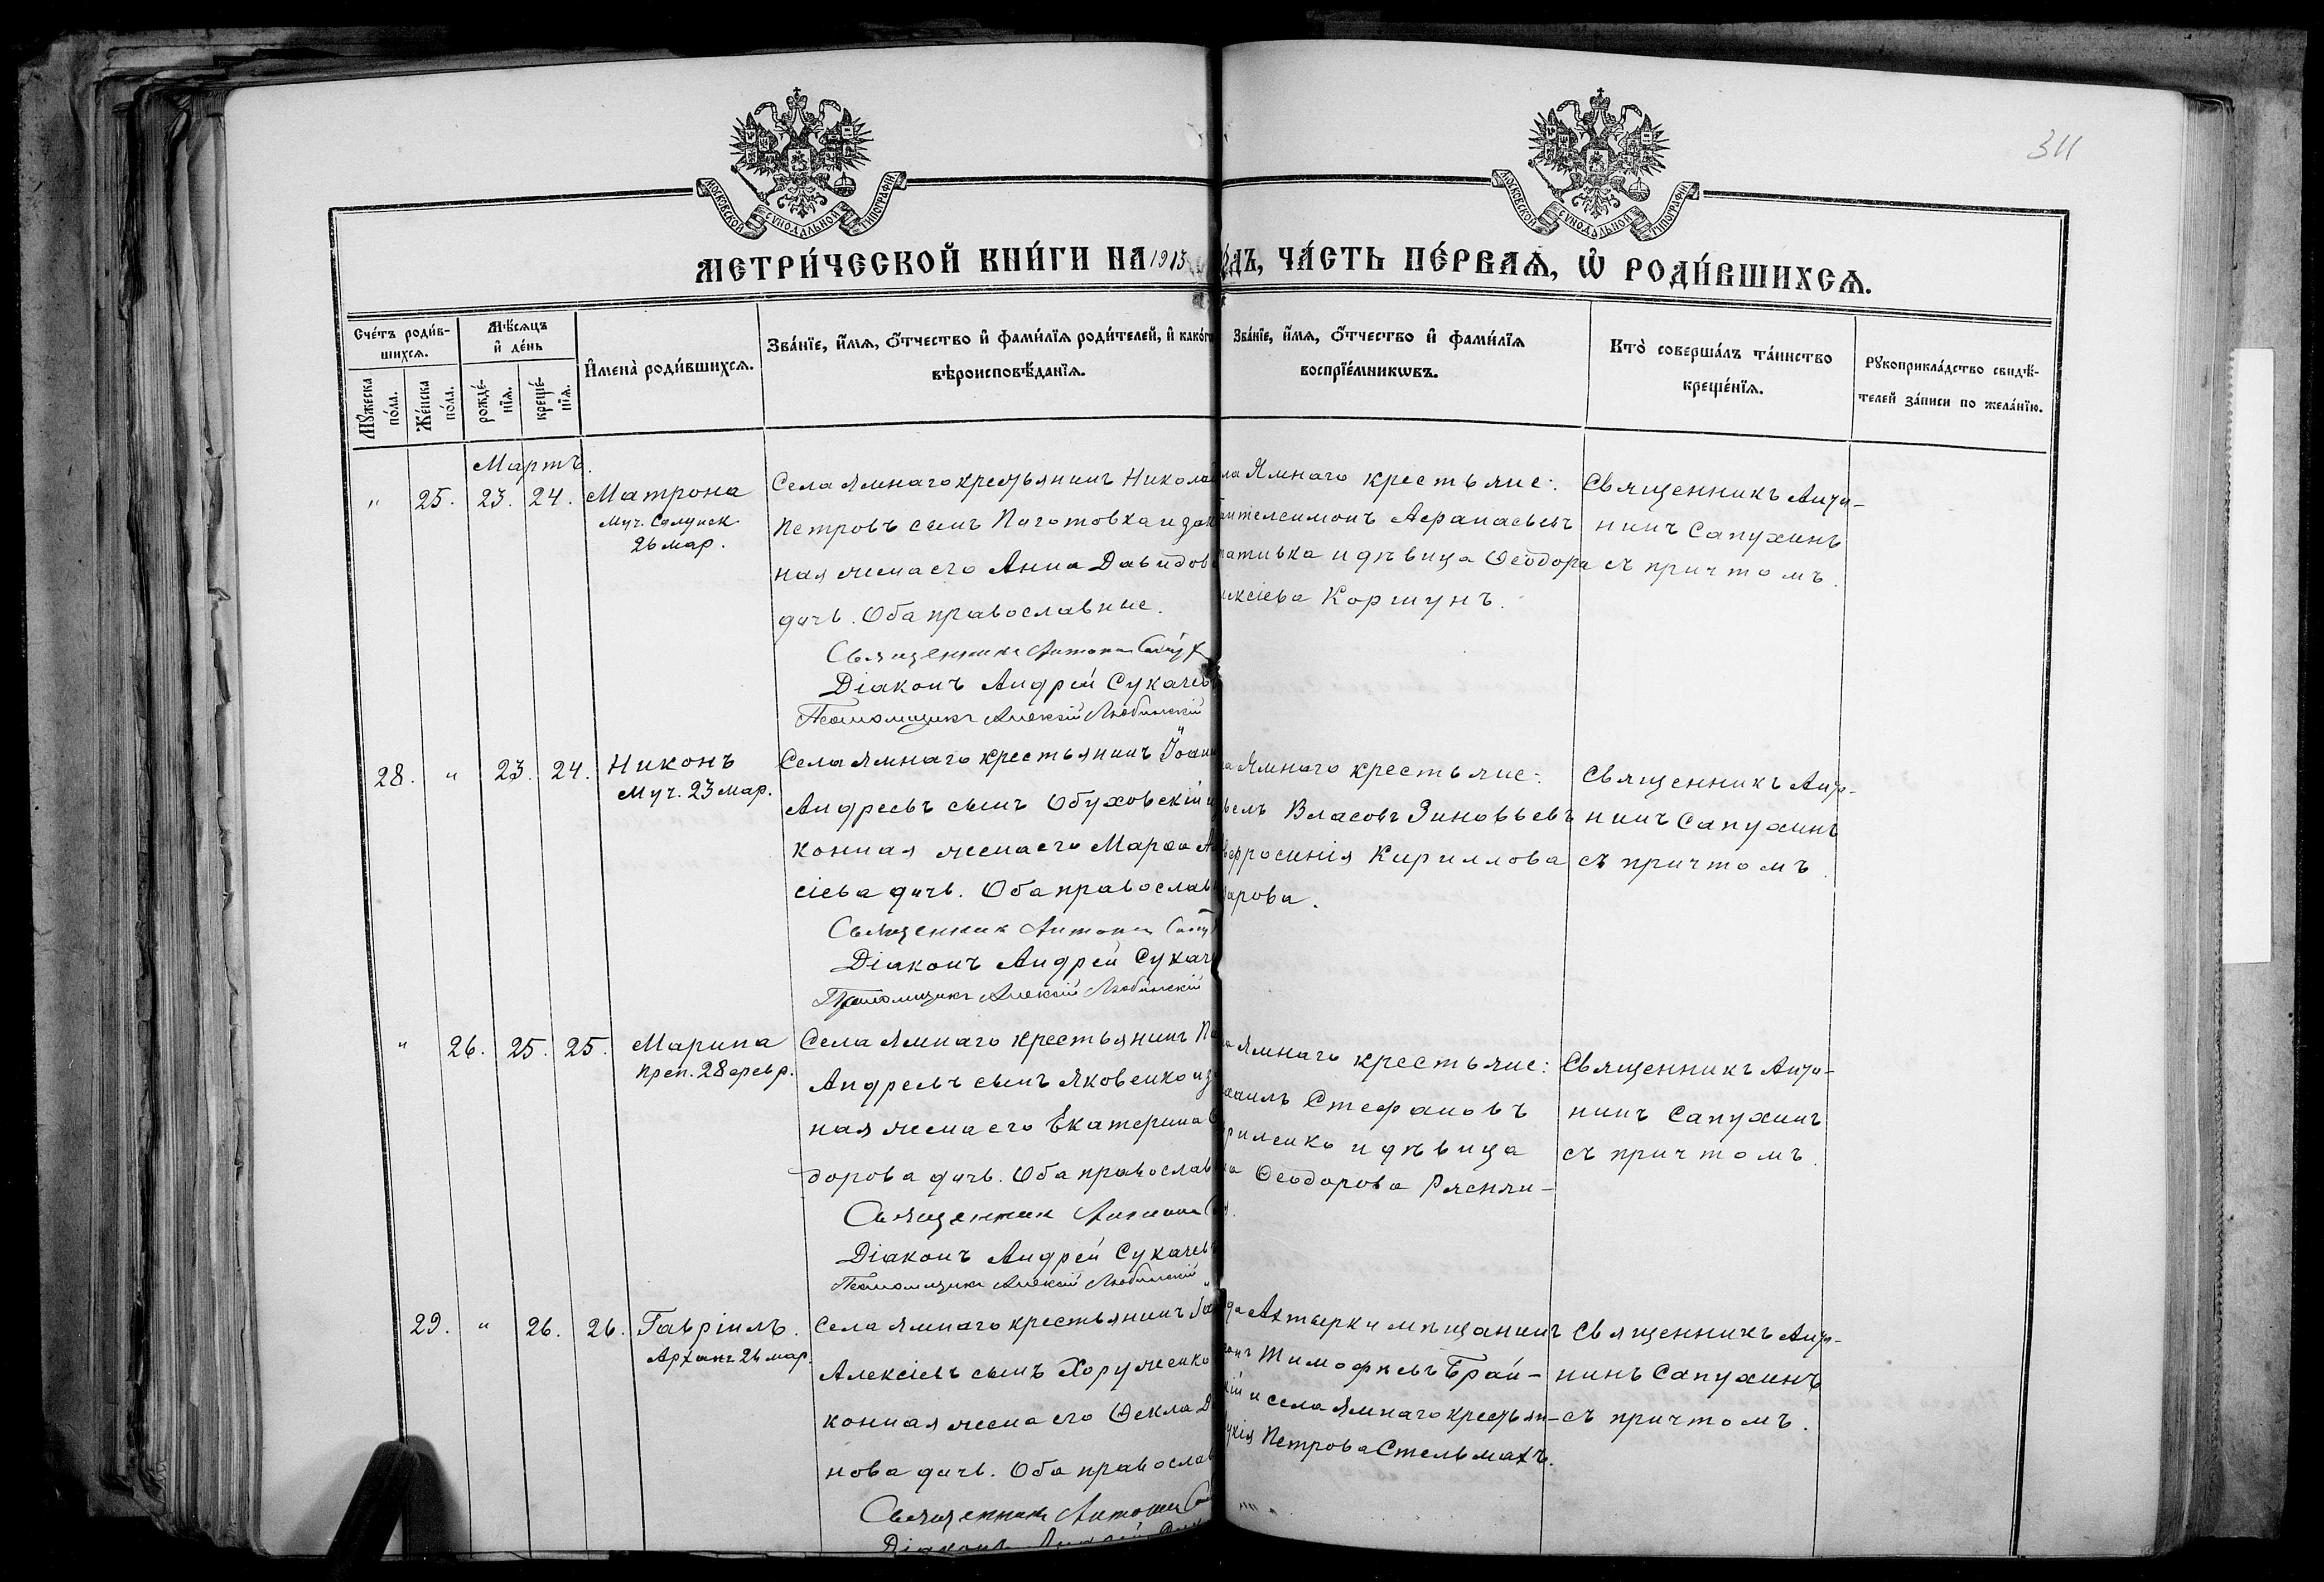 МОСКОВСКОЙ СѴНОДАЛЬНОЙ ТИПОГРАФІИ
МОСКОВСКОЙ СѴНОДАЛЬНОЙ ТИПОГРАФІИ
МЕТРИ́ЧЕСКОЙ КНИ́ГИ НА 1913
ДЪ, ЧА́СТЬ ПЕ́РВАѦ, Ѡ҆ РОДИ́ВШИХСѦ.
Сче́тъ роди́в-
шихсѧ.
Мꙋ́жеска по́ла.
Же́нска по́ла.
Мѣ́сѧцъ и҆ де́нь
рожде́-нїѧ.
креще́-нїѧ.
И҆мена̀ роди́вшихсѧ.
Зва́нїе, и҆́мѧ, ѻ҆́тчество и҆ фами́лїѧ роди́телей, и҆ како́г
вѣроисповѣ́данїѧ.
Зва́нїе, и҆́мѧ, ѻ҆́тчество и҆ фами́лїѧ
воспрїе́мникѡвъ.
Кто̀ соверша́лъ та́инство
креще́нїѧ.
Рꙋкоприкла́дство свидѣ́-
телей за́писи по жела́нїю.
Мартъ.
" 25. 23. 24. Матрона
Муч. Солунск.
26 мар.
Села Ямнаго крестьянинъ Никола
Петровъ сынъ и зак
ная жена его Анна Давидов
дочь. Оба православные.
Священникъ Антонин
Діаконъ Андрей Сукачев
Псаломщикъ Алексій Любинскій
ла Ямнаго крестьяне:
нтелеимонъ Афанасьевъ
и дѣвица Ѳеодора
лексіева Коршунъ.
Священникъ Анто-
нинъ Сапухинъ
съ причтомъ.
28. " 23. 24. Никонъ
Муч. 23 мар.
Села Ямнаго крестьянинъ Іоанн
Андреевъ сынъ Обуховскій и
конная жена его Марѳа А
сіева дочь. Оба православ
Священник Антонин
Діаконъ Андрей Сукач
Псаломщикъ Алексій Любинскій
а Ямнаго крестьяне:
велъ Власовъ Зиновьевъ
вфросинія Кириллова
арова.
Священникъ Анто-
нинъ Сапухинъ
съ причтомъ.
" 26. 25. 25. Марина
Преп. 28 февр.
Села Ямнаго крестьянинъ Па
Андреевъ сынъ Яковенко и з
ная жена его Екатерина
дорова дочь. Оба православ
Священник Антонин
Діаконъ Андрей Сукачев
Псаломщикъ Алексій Любинскій
а Ямнаго крестьяне:
хаилъ Стефановъ
риленко и дѣвица
на Ѳеодорова
Священникъ Анто-
нинъ Сапухинъ
съ причтомъ.
29. " 26. 26. Гавріилъ.
Архан. 26 мар.
Села Ямнаго крестьянинъ Іоа
Алексіевъ сынъ Хоруженко
конная жена его Ѳекла Д
нова дочь. Оба православ
Священник Антонин
Діаконъ
да Ахтырки мѣщанинъ
Тимофеевъ Брай-
кій и села Ямнаго крестьян-
Петрова Стельмахъ.
Священникъ Анто-
нинъ Сапухинъ
съ причтомъ.